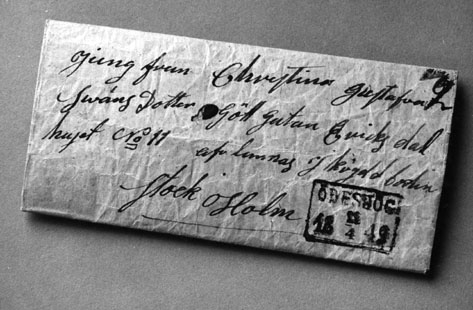 Jung frun Chrystina Gustafva
Swäns Dotter Gött gatan Ericks dal
huset No 11 aflemnas i
Stock Holm
ÖDESHÖG
4